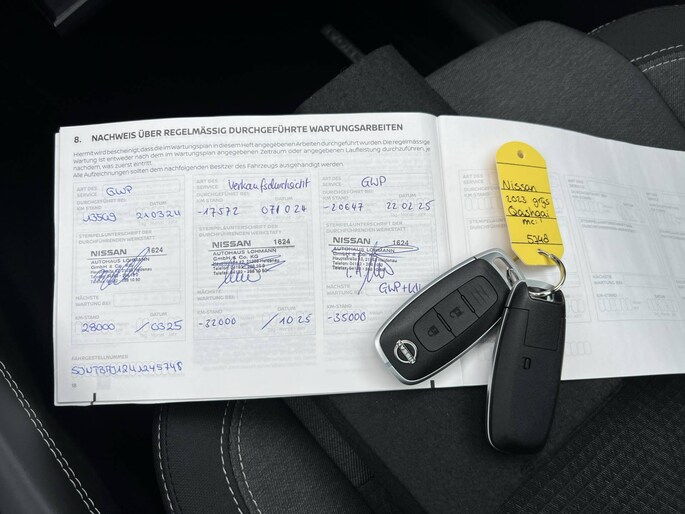 8. NACHWEIS ÜBER REGELMÄSSIG DURCHGEFÜHRTE WARTUNGSARBEITEN
Hiermit wird bescheinigt, dass die im Wartungsplan in diesem Heft angegebenen Arbeiten durchgeführt wurden. Die regelmäßige
Wartung ist entweder nach dem im Wartungsplan angegebenen Zeitraum oder angegebener Laufleistung durchzuführen, je
nachdem, was zuerst eintrifft.
Alle Aufzeichnungen sollten dem nachfolgenden Besitzer des Fahrzeugs ausgehändigt werden.
ART DES
SERVICE GWP
DURCHGEFÜHRT BEI
KM-STAND DATUM
13509 210324
STEMPEL/UNTERSCHRIFT DER
DURCHFÜHRENDEN WERKSTATT
NISSAN 1624
AUTOHAUS LOHMANN
GmbH & Co. KG
NÄCHSTE
WARTUNG BEI
KM-STAND DATUM
28000 /0325
FAHRGESTELLNUMMER
ART DES
SERVICE Verkaufsdurchsicht
DURCHGEFÜHRT BEI
KM-STAND DATUM
-17572 071024
STEMPEL/UNTERSCHRIFT DER
DURCHFÜHRENDEN WERKSTATT
NISSAN 1624
AUTOHAUS LOHMANN
GmbH & Co. KG
NÄCHSTE
WARTUNG BEI
KM-STAND DATUM
-22000 /1025
ART DES
SERVICE GWP
DURCHGEFÜHRT BEI
KM-STAND DATUM
-20647 220225
STEMPEL/UNTERSCHRIFT DER
DURCHFÜHRENDEN WERKSTATT
NISSAN 1624
AUTOHAUS LOHMANN
GmbH & Co. KG
NÄCHSTE
WARTUNG BEI
KM-STAND
-35000
Nissan
2023
Qashqai
5748
NISSAN